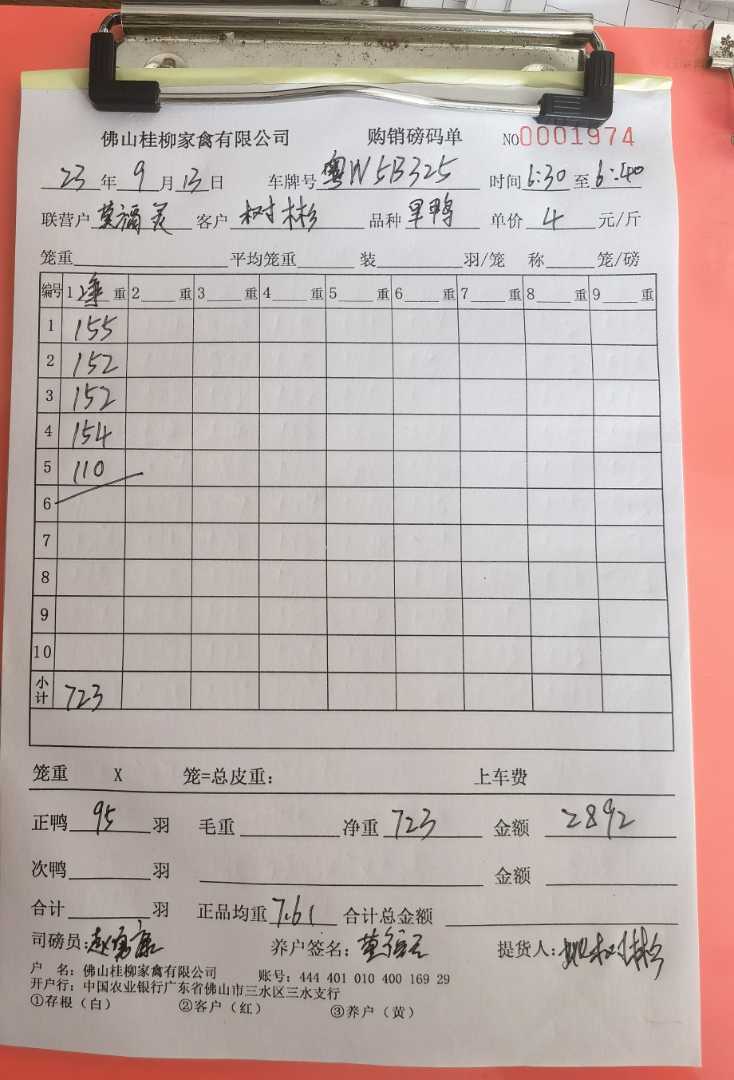 佛山桂柳家禽有限公司 购销磅码单 NO0001974
23年9月13日 车牌号粤W5B325 时间6:30至6:40
联营户 客户树彬 品种旱鸭 单价4元/斤
笼重 平均笼重 装 羽/笼 称 笼/磅
编号 1净重 2 重 3 重 4 重 5 重 6 重 7 重 8 重 9 重
1 155
2 152
3 152
4 154
5 110
6
7
8
9
10
小计 723
笼重 X 笼=总皮重: 上车费
正鸭95羽 毛重 净重723 金额2892
次鸭 羽 金额
合计 羽 正品均重7.61 合计总金额
司磅员: 养户签名: 提货人:姚树彬
户 名: 佛山桂柳家禽有限公司 账号: 444 401 010 400 169 29
开户行: 中国农业银行广东省佛山市三水区三水支行
①存根(白) ②客户(红) ③养户(黄)